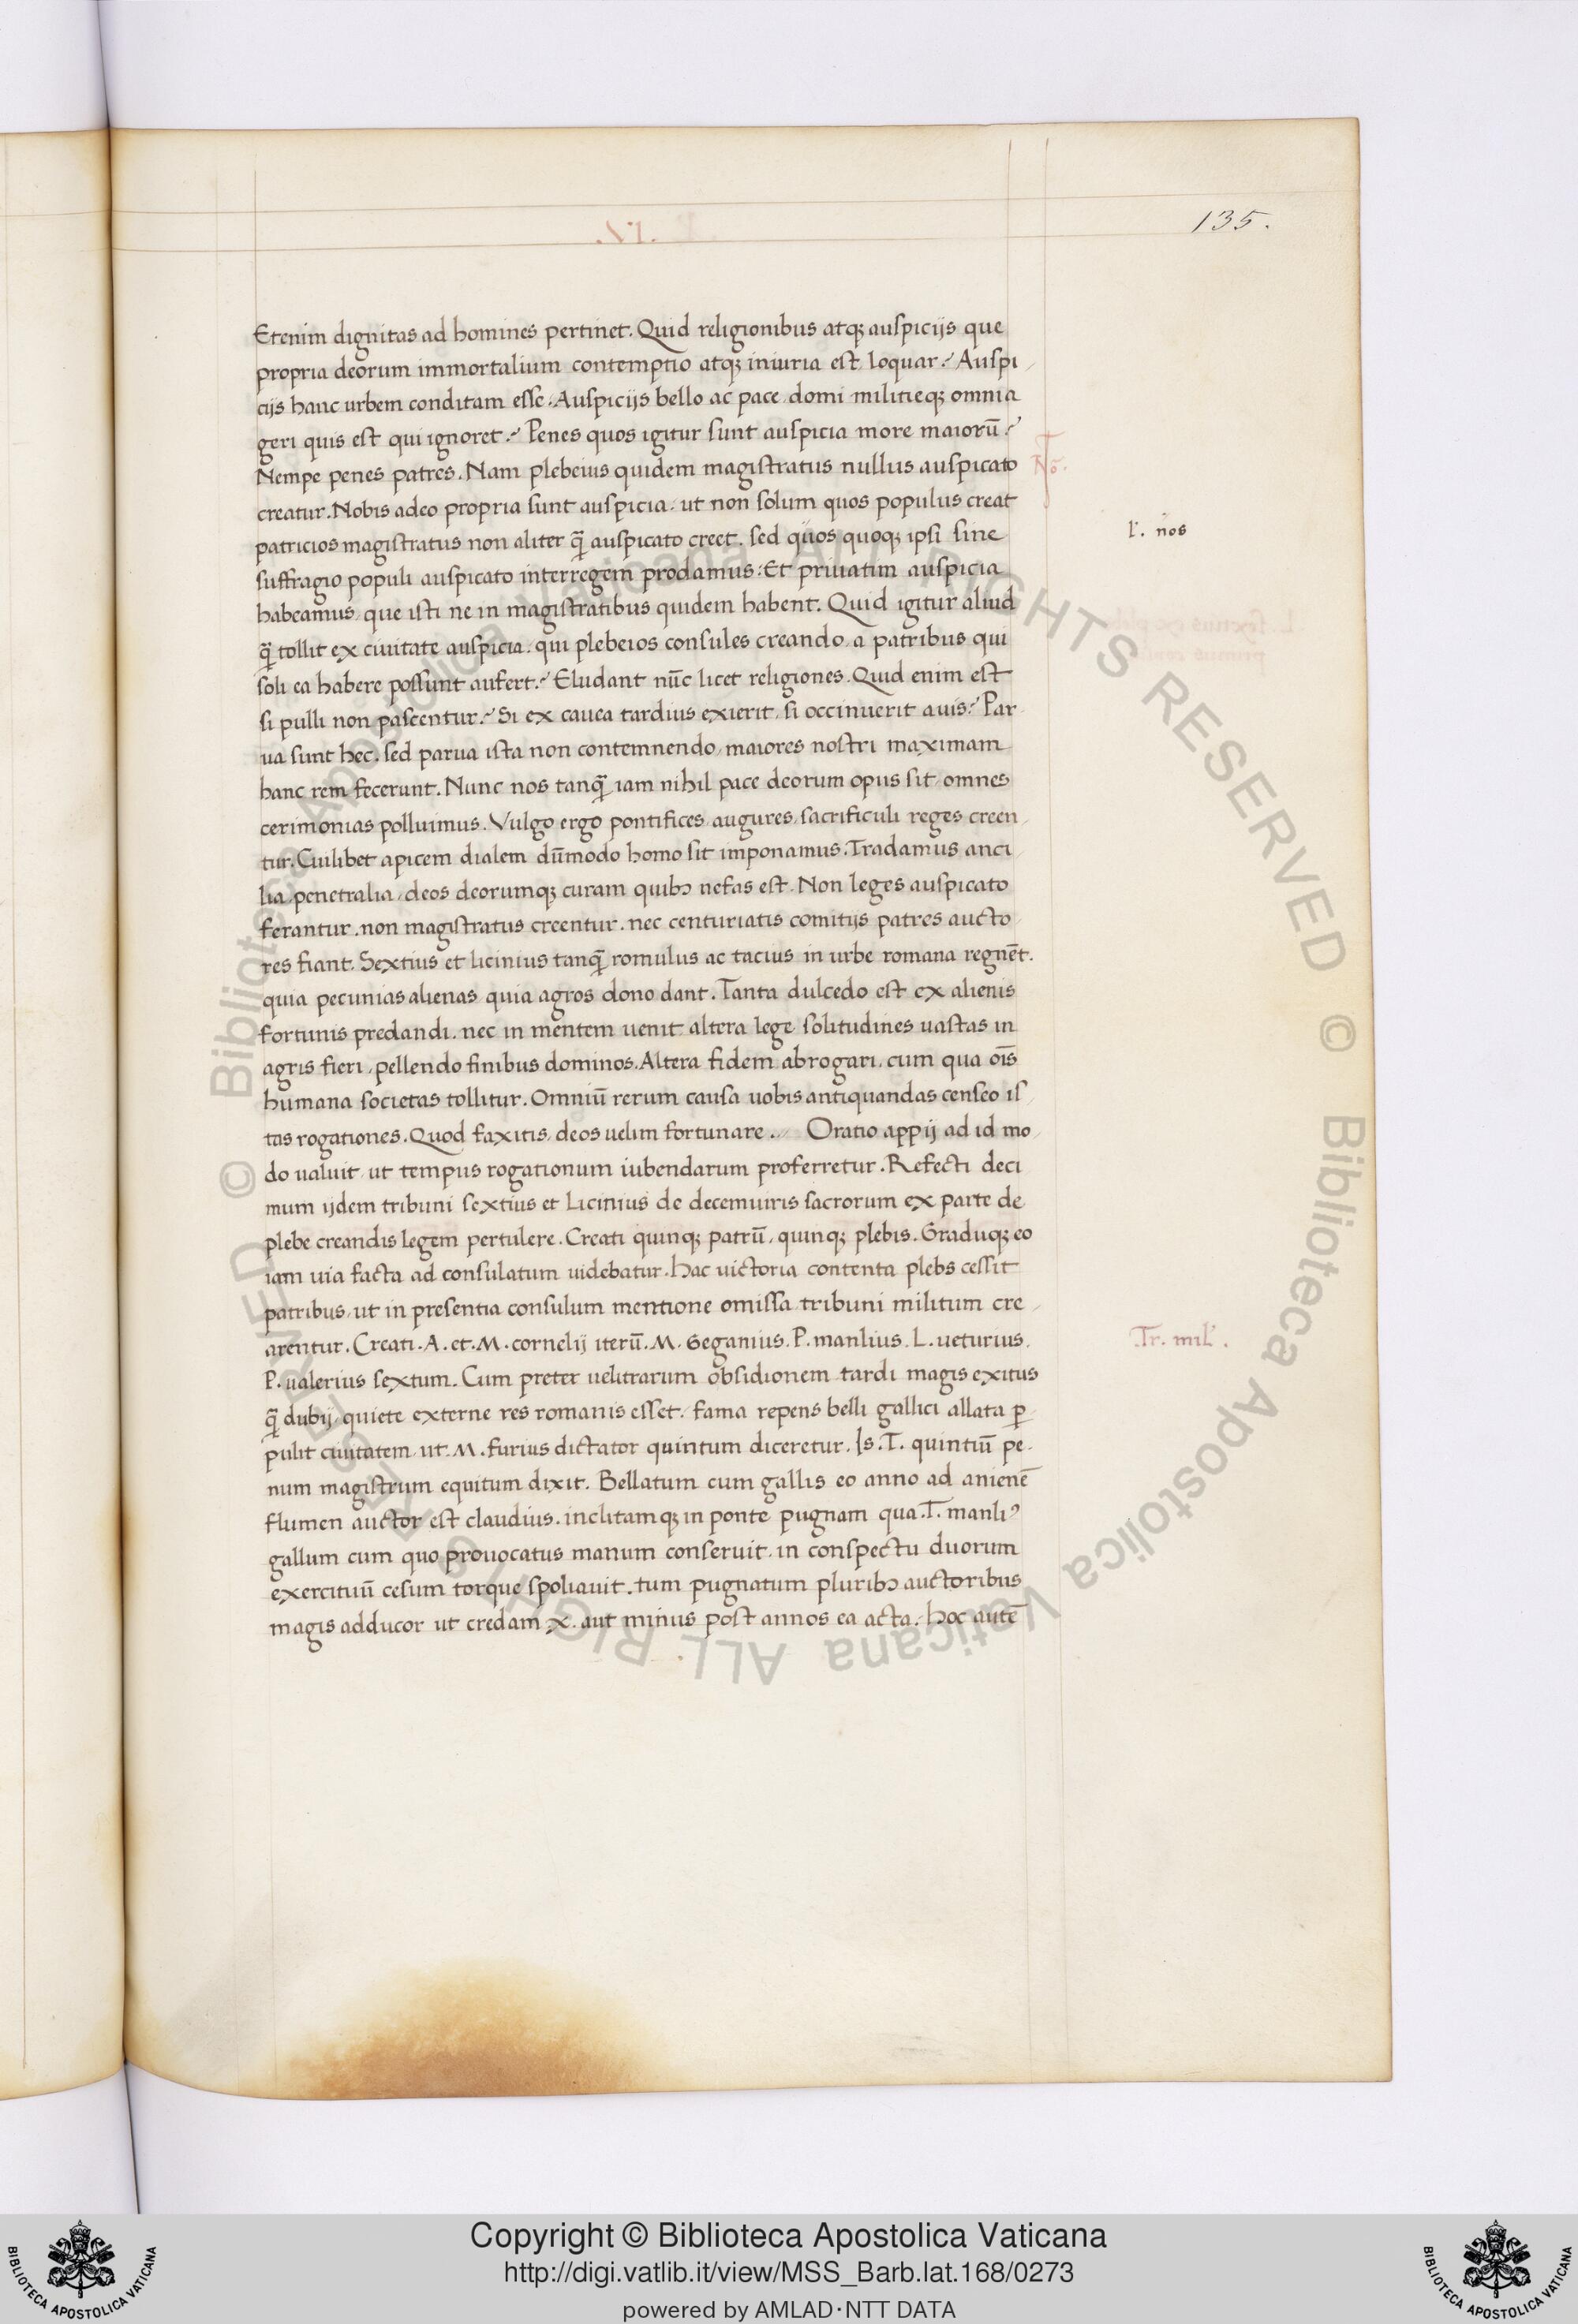 135.
Etenim dignitas ad homines pertinet. Quid religionibus atq; auspicijs que
propria deorum immortalium contemptio atq; iniuria est loquar? Auspi
cijs hanc urbem conditam esse. Auspicijs bello ac pace domi militieq; omnia
geri quis est qui ignoret? Penes quos igitur sunt auspicia more maiorū?
Nempe penes patres. Nam plebeius quidem magistratus nullus auspicato
No.
creatur. Nobis adeo propria sunt auspicia ut non solum quos populus creat
patricios magistratus non aliter q̄ auspicato creet. sed quos quoq; ipsi sine
l'. nos
suffragio populi auspicato interregem prodamus: Et priuatim auspicia
habeamus, que isti ne in magistratibus quidem habent. Quid igitur aliud
q̄ tollit ex ciuitate auspicia. qui plebeios consules creando, a patribus qui
soli ea habere possunt aufert? Eludant nūc licet religiones. Quid enim est
si pulli non pascentur? Si ex cauea tardius exierit, si occinuerit auis? Par
ua sunt hec. sed parua ista non contemnendo, maiores nostri maximam
hanc rem fecerunt. Nunc nos tanq̄ iam nihil pace deorum opus sit omnes
cerimonias polluimus. Vulgo ergo pontifices, augures, sacrificuli reges creen
tur. Cuilibet apicem dialem dūmodo homo sit imponamus. Tradamus anci
lia, penetralia, deos deorumq; curam quibꝫ nefas est. Non leges auspicato
ferantur. non magistratus creentur. nec centuriatis comitijs patres aucto
res fiant. Sextius et licinius tanq̄ romulus ac tacius in urbe romana regnēt.
quia pecunias alienas quia agros dono dant. Tanta dulcedo est ex alienis
fortunis predandi. nec in mentem uenit altera lege solitudines uastas in
agris fieri, pellendo finibus dominos. Altera fidem abrogari, cum qua oīs
humana societas tollitur. Omniū rerum causa uobis antiquandas censeo is
tas rogationes. Quod faxitis, deos uelim fortunare. Oratio appij ad id mo
do ualuit, ut tempus rogationum iubendarum proferretur. Refecti deci
mum ijdem tribuni sextius et Licinius de decemuiris sacrorum ex parte de
plebe creandis legem pertulere. Creati quinq; patrū, quinq; plebis. Graduq; eo
iam uia facta ad consulatum uidebatur. Hac uictoria contenta plebs cessit
patribus, ut in presentia consulum mentione omissa tribuni militum cre
arentur. Creati. A. et. M. cornelij iterū. M. Geganius. P. manlius. L. ueturius.
Tr. mil'.
P. ualerius sextum. Cum preter uelitrarum obsidionem tardi magis exitus
q̄ dubij, quiete externe res romanis esset, fama repens belli gallici allata p̱
pulit ciuitatem, ut. M. furius dictator quintum diceretur. Is. T. quintiū pe
num magistrum equitum dixit. Bellatum cum gallis eo anno ad anienē
flumen auctor est claudius. inclitamq; in ponte pugnam qua. T. manliꝰ
gallum cum quo prouocatus manum conseruit, in conspectu duorum
exercituū cesum torque spoliauit. tum pugnatum pluribꝫ auctoribus
magis adducor ut credam x. aut minus post annos ea acta. Hoc autē
© Biblioteca Apostolica Vaticana ALL RIGHTS RESERVED © Biblioteca Apostolica Vaticana ALL RIGHTS RESERVED
Copyright © Biblioteca Apostolica Vaticana
http://digi.vatlib.it/view/MSS_Barb.lat.168/0273
powered by AMLAD·NTT DATA
BIBLIOTECA APOSTOLICA VATICANA
BIBLIOTECA APOSTOLICA VATICANA